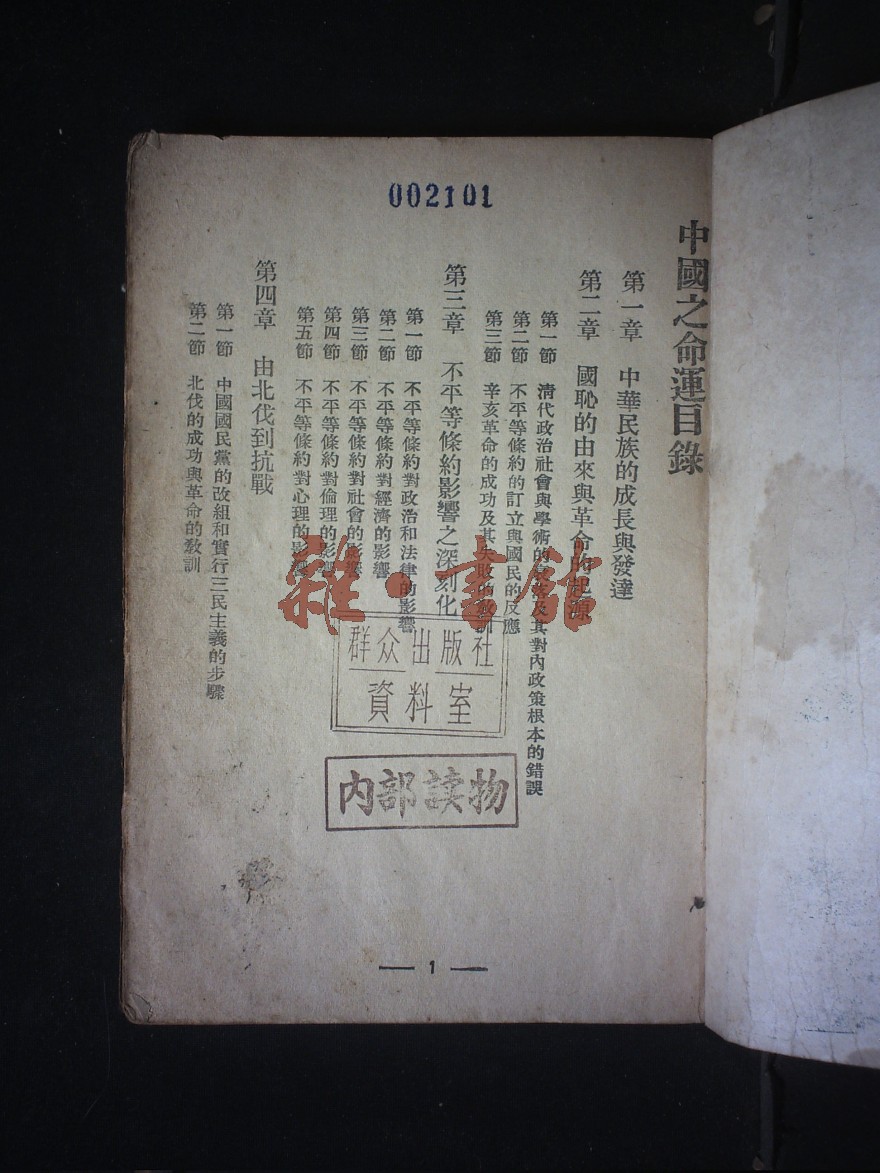 002101
中國之命運目錄
第一章 中華民族的成長與發達
第二章 國恥的由來與革命的起源
第一節 清代政治社會與學術的衰落及其對內政策根本的錯誤
第二節 不平等條約的訂立與國民的反應
第三節 辛亥革命的成功及其失敗的教訓
第三章 不平等條約影響之深刻化
第一節 不平等條約對政治和法律的影響
第二節 不平等條約對經濟的影響
第三節 不平等條約對社會的影響
第四節 不平等條約對倫理的影響
第五節 不平等條約對心理的影響
第四章 由北伐到抗戰
第一節 中國國民黨的改組和實行三民主義的步驟
第二節 北伐的成功與革命的教訓
雜·書館
群众出版社
資料室
内部读物
— 1 —